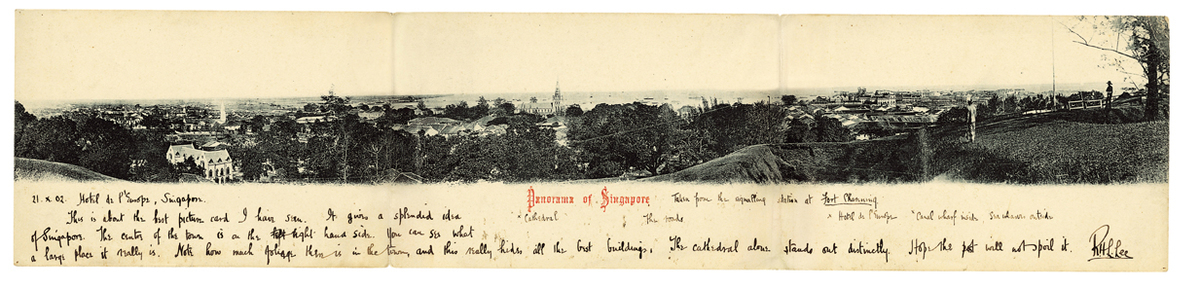 21. x. 02. Hotel de l'Europe, Singapore. Panorama of Singapore Taken from the signalling station at Fort Channing
This is about the best picture card I have seen. It gives a splendid idea "Cathedral The roads " Hotel de l'Europe "Canal wharf inside. Sea outside
of Singapore. The center of the town is on the right hand side. You can see what
a large place it really is. Note how much foliage there is in the town, and this really hides all the best buildings. The cathedral alone stands out distinctly. Hope the post will not spoil it. Lee